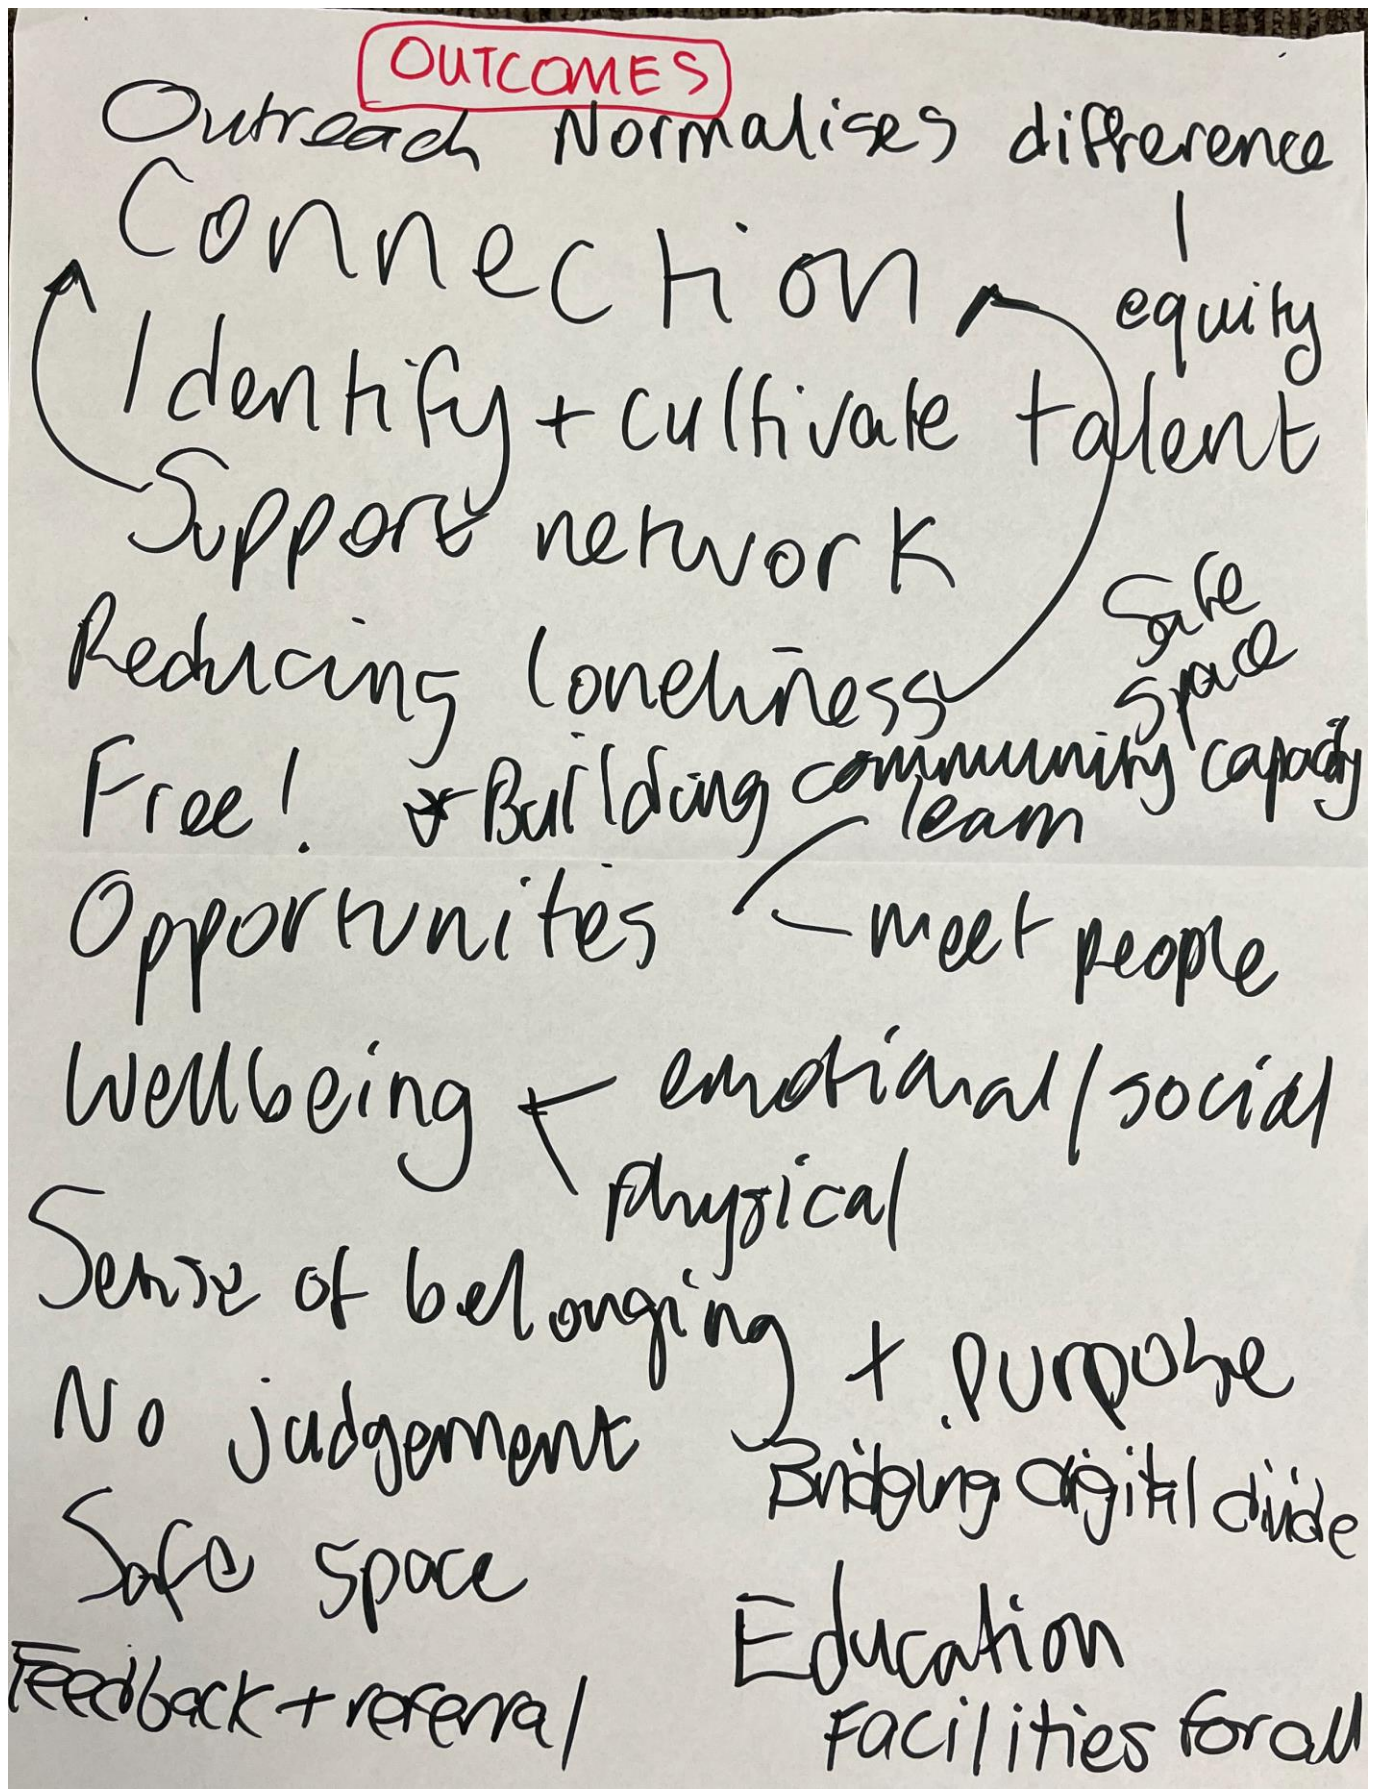 OUTCOMES
Outreach Normalises difference
equity
Connection
Identify + cultivate talent
Support network
Safe
space
Reducing loneliness
Free! Building community capacity
learn
Opportunities
meet people
Wellbeing emotional/social
physical
Sense of belonging + purpose
No judgement
Bridging digital divide
Safe space
Education
Feedback + referral
Facilities for all